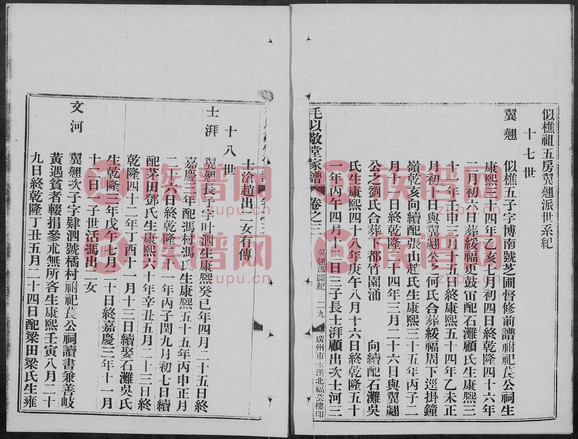 似樵祖五房翼翹派世系紀
十七世
翼翹 似樵五子字博南號芝圃督修前譜祔祀莨公祠生
康熙三十四年乙亥七月初四日終乾隆四十六年
二月初六日葬綏福更鼓冚配石灘顧氏生康熙三
十一年壬申三月十五日終乾隆四十年乙未正
月初十日與翼翹公何氏合葬綏福周下逕掛鐘
嶺乾亥向續配張山趙氏生康熙三十五年五月二
月十二日終乾隆二十四年三月二十六日與翼翹
公之劉氏合葬下都竹園涌 向續配石灘吳
氏生康熙四十八年庚午八月十六日終乾隆五十
一年丙午四月十二日三子長士湃顧出次士河三
毛以敬堂家譜
卷之三
翼翹派世紀
二九
廣州市永漢北福芸樓印
士洽趙出二女有傳
十八世
士湃 翼翹長子字叶泗生康熙癸巳年四月二十五日終
嘉慶 年配馮村馮氏生康熙五十五年丙申正月
二十六日終乾隆二十一年丙子閏九月初七日續
配茅田鄧氏生康熙六十年辛丑五月二十三日終
乾隆四十二年丁酉十一月十三日續娶石灘吳氏
生乾隆三年戊午七月二十日終嘉慶三年十一月
十一日一子世活馮出二女
文河 翼翹次子字肄泗號橘村祔祀莨公祠讀書兼善岐
黃遇貧者輟捐參朮無所吝生康熙壬寅八月二十
九日終乾隆丁丑五月二十四日配梁田梁氏生雍